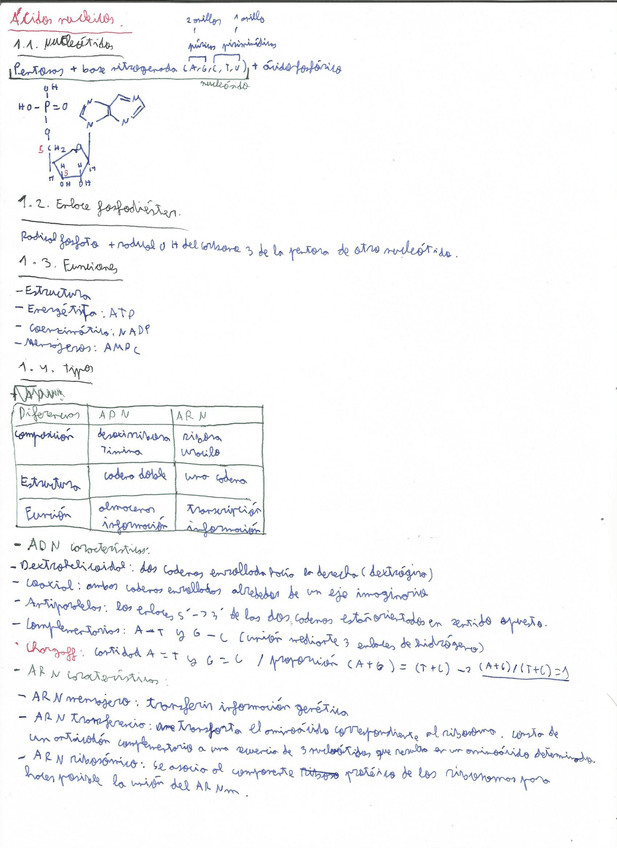 Ácidos nucleicos.
2 anillos 1 anillo
1.1. Nucleótidos
púricas pirimidínicas
Pentosas + base nitrogenada (A, G, C, T, U) + ácido fosfórico
nucleósido
OH
HO-P=O
O
5 CH2 O
H H H
H 3
OH OH
N N N N
1.2. Enlace fosfodiéster.
Radical fosfato + radical OH del carbono 3 de la pentosa de otro nucleótido.
1.3. Funciones
- Estructura
- Energética: ATP
- Coenzimática: NADP
- Mensajeros: AMPC
1.4. Tipos
Diferencias ADN ARN
Composición desoxirribosa ribosa
Timina uracilo
Estructura cadena doble una cadena
Función almacena transcripción
información información
- ADN características:
- Dextrohelicoidal: dos cadenas enrollada hacia la derecha (dextrógiro)
- Coaxial: ambas cadenas enrolladas alrededor de un eje imaginario
- Antiparalelas: los enlaces 5'->3' de las dos cadenas están orientados en sentido opuesto.
- Complementarias: A=T y G-C (unión mediante 3 enlaces de hidrógeno)
· Chargaff: cantidad A=T y G=C / proporción (A+G) = (T+C) -> (A+G)/(T+C)=1
- ARN características:
- ARN mensajero: transferir información genética
- ARN transferencia: transporta el aminoácido correspondiente al ribosoma. consta de
un anticodón complementario a una secuencia de 3 nucleótidos que resulta en un aminoácido determinado.
- ARN ribosómico: se asocia al componente proteico de los ribosomas para
hacer posible la unión del ARNm.